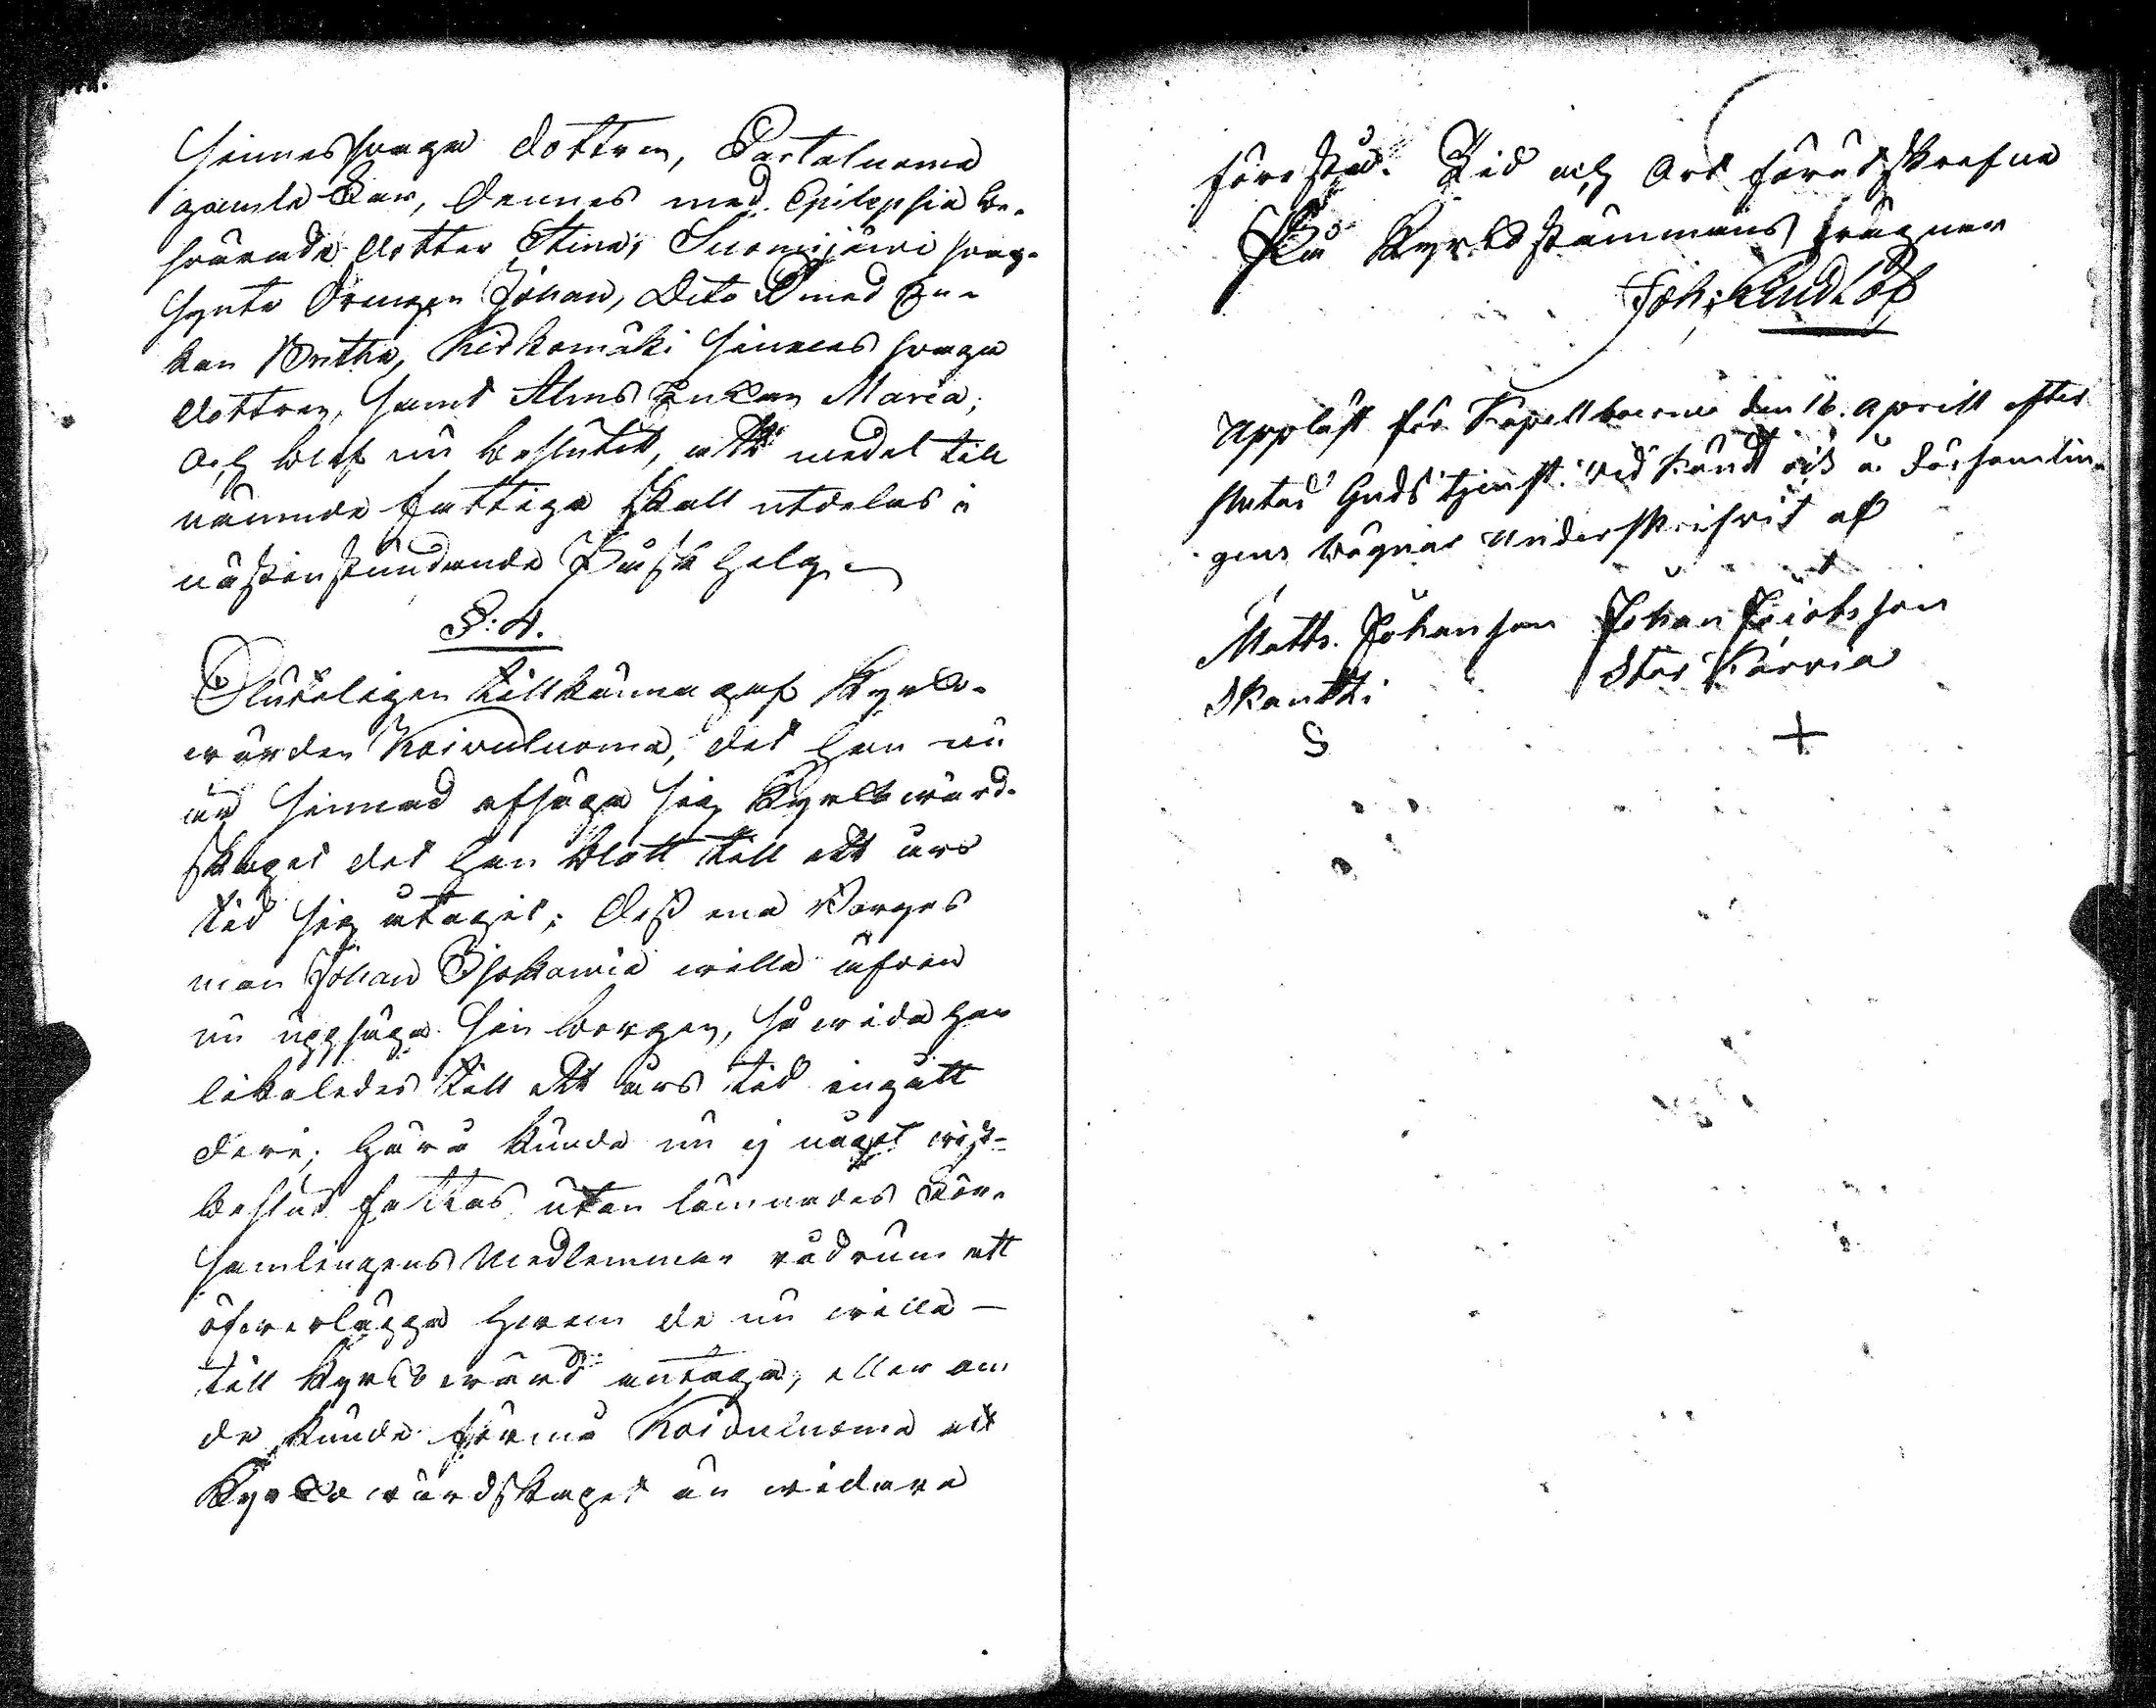 sinnessvaga dottren, Partaluoma
gamla Far, dennes med Epilepsia be-
svärade dotter Stina, Suomijärvi svag-
synta Drängen Johan, Dito En-
kan Britha, Kiskomäki sinnes svaga
dottren, samt Alms Enkan Maria;
och blef nu beslutit, att medel till
nämnde fattiga skall utdelas i
nästinstundande Påsk helg.
§: 4.
Sluteligen tillkänna gaf Kyrko-
wärden Koivuluoma, det han nu
är sinnad afsäga sig Kyrkowärd-
skapet det han blott till ett års
tid sig åtagit; dess ena Borges
man Johan Isokawia wille äfven
nu uppsäga sin borgen, så wida han
likaledes till ett års tid ingått
deri; Härå kunde nu ej något wist
beslut fattas utan lämnades För-
samlingens Medlemmar rådrum att
öfwerlägga hwem de nu wille —
till Kyrkowärd antaga, eller om
de kunde förmå Koivuluoma att
Kyrkowärdskapet än widare
förestå. Tid och Ort förutskrefne
På Kyrkostämmans wägnar
Joh: Lindlöf
Uppläst för Kapellboerne den 16. Aprill efter
slutad Guds tjenst. Vid känt och å Församlin-
gens wägnar Underskrifvit af
Matts. Johansson Johan Jacobsson
Skantti Stor Karvia
S +